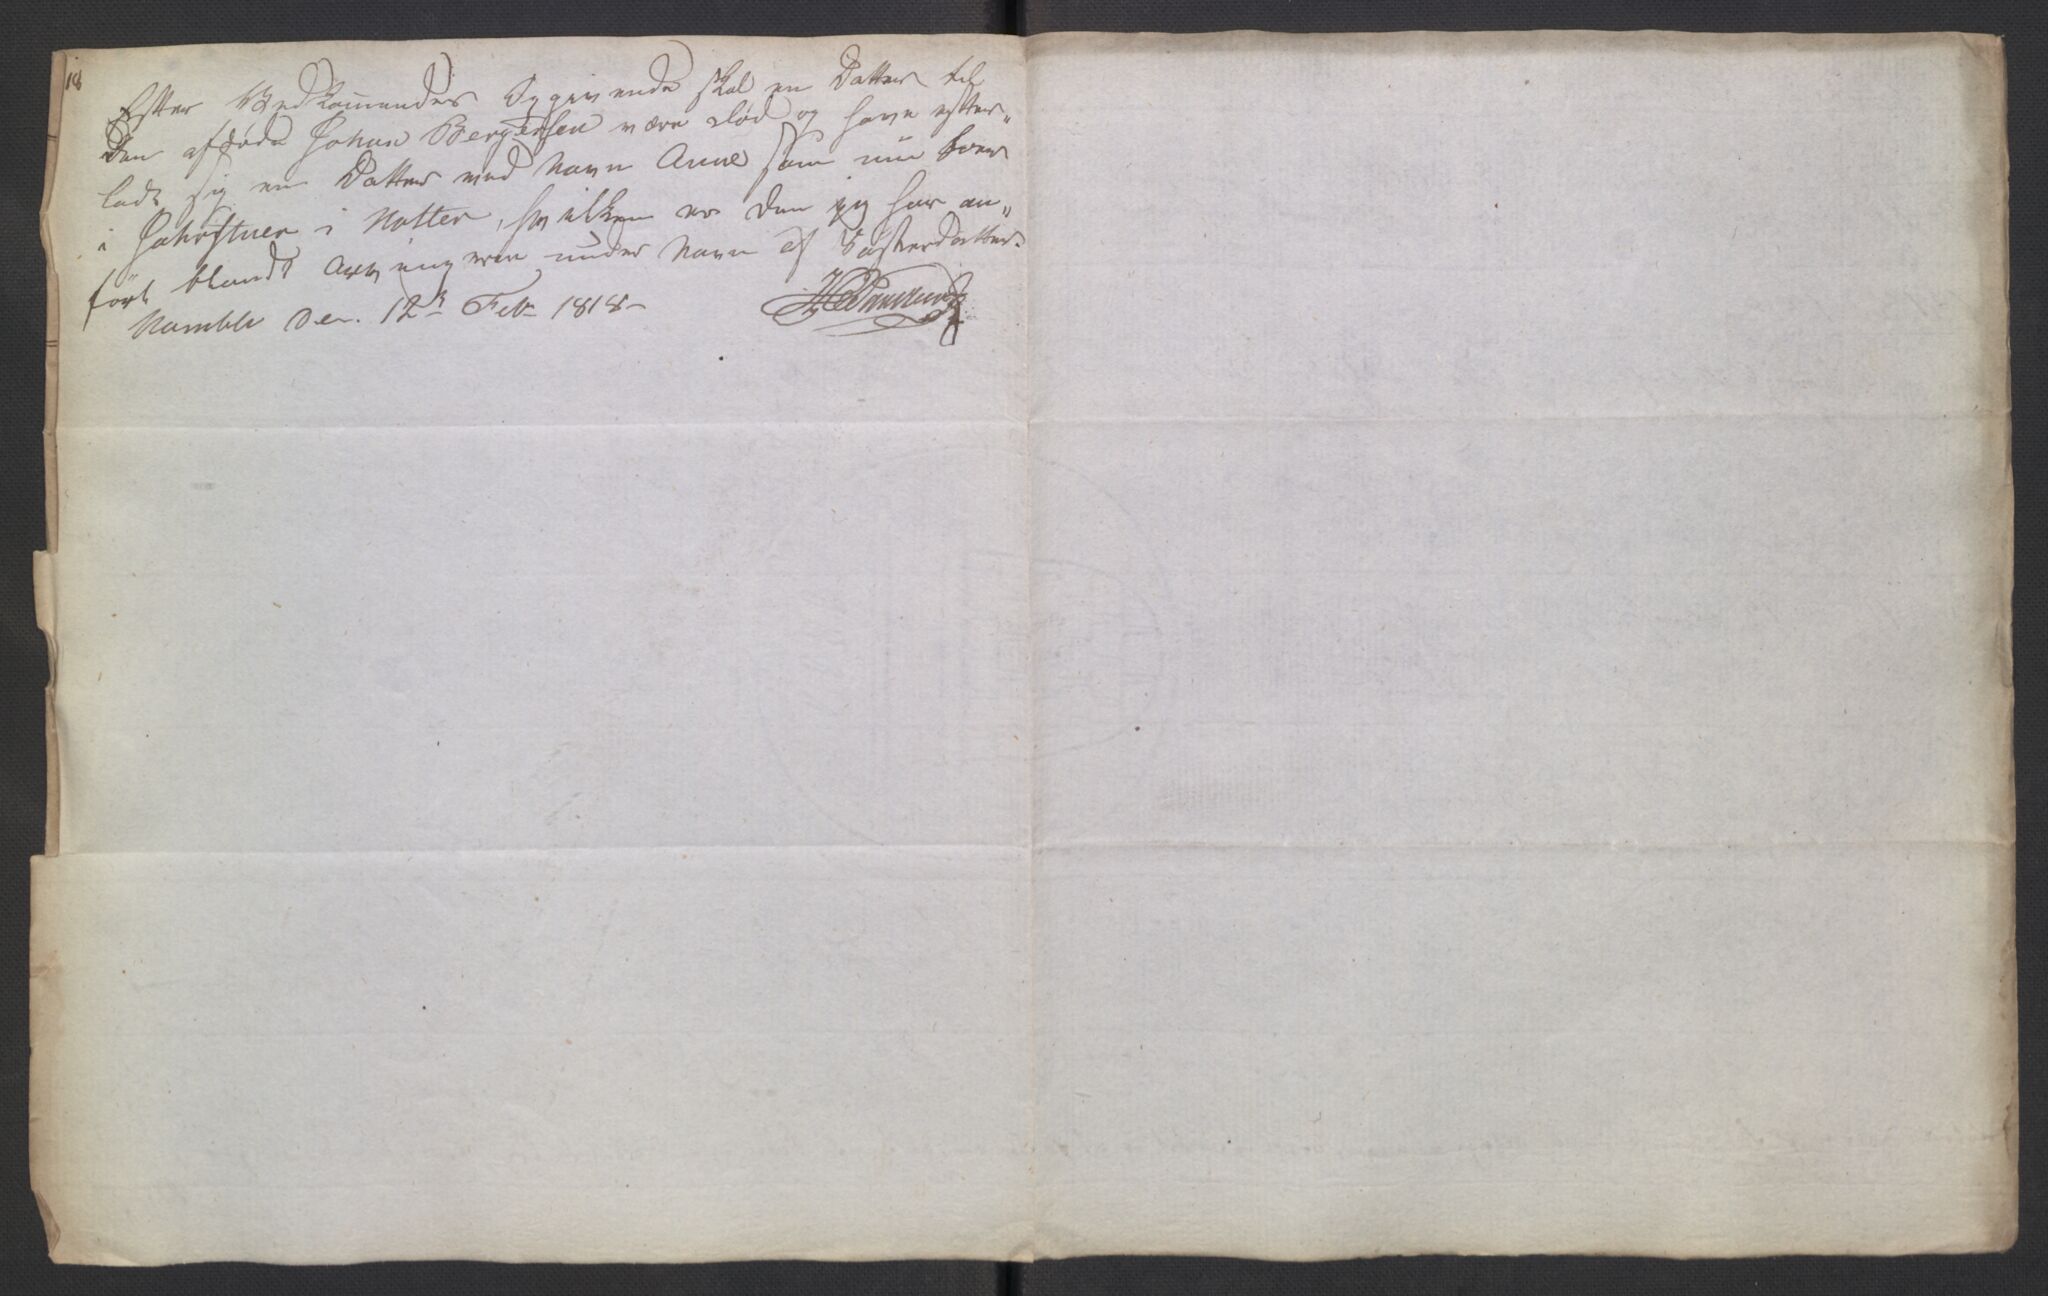 18
Efter Vedkommendes Opgivende skal en Datter til
den afdøde Johan Bergersen være død og have efter„
ladt sig en Datter ved Navn Anne som nu boer
i i Holter, hvilken er den jeg har an„
ført blandt Arvingerne under Navn af Søsterdatter.
Bamble den. 12te Feb 1818-